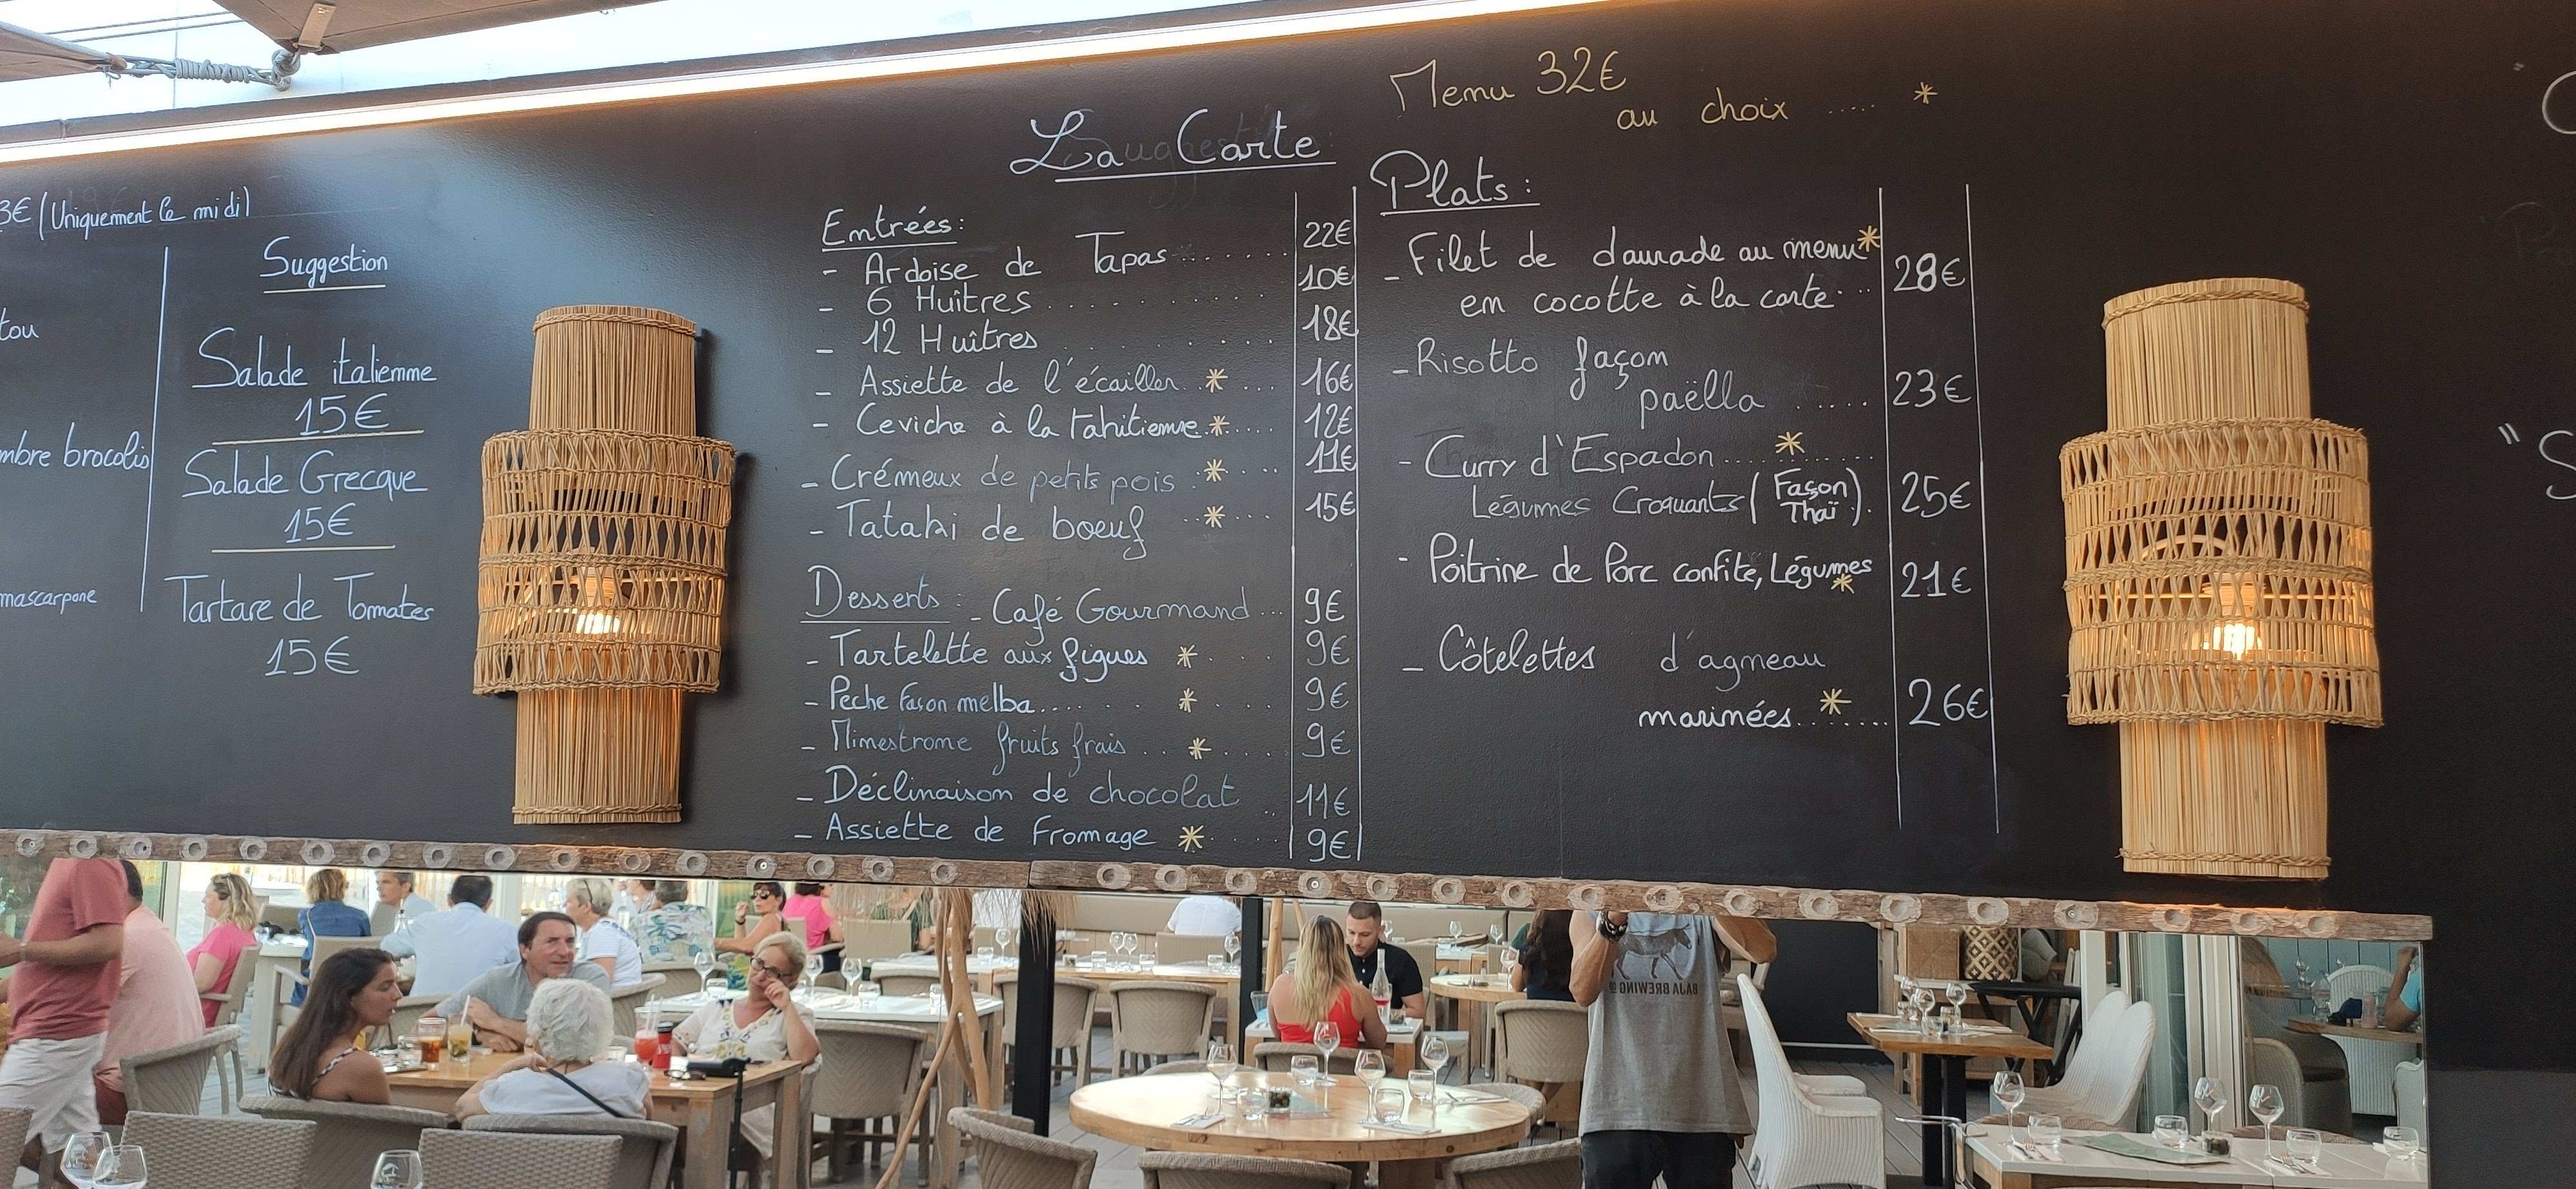 3€ (Uniquement le midi)
tou
mbre brocolis
mascarpone
Suggestion
Salade italienne
15€
Salade Grecque
15€
Tartare de Tomates
15€
La Carte
Entrées:
- Ardoise de Tapas ...... 22€
- 6 Huîtres ......... 10€
- 12 Huîtres ........ 18€
- Assiette de l'écailler..*... 16€
- Ceviche à la tahitienne.*.... 12€
- Crémeux de petits pois .*... 11€
- Tataki de boeuf ..*... 15€
Desserts: - Café Gourmand... 9€
- Tartelette aux figues * ... 9€
- Peche façon melba.... * ... 9€
- Minestrone fruits frais .. * ... 9€
- Déclinaison de chocolat .. 11€
- Assiette de Fromage * ... 9€
Menu 32€
au choix ..... *
Plats:
- Filet de daurade au menu*
en cocotte à la carte... 28€
- Risotto façon
paëlla ..... 23€
- Curry d'Espadon....*......
Légumes Croquants (Façon Thaï). 25€
- Poitrine de Porc confite, Légumes * 21€
- Côtelettes d'agneau
marinées..*..... 26€
BAJA BREWING